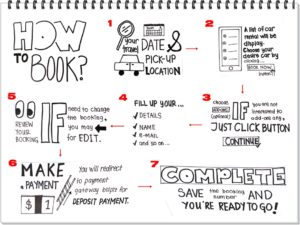 HOW
TO
BOOK?
1
your
travel
DATE &
PICK-UP
LOCATION
2
A list of car
rental will be
display.
Choose your
desire car by
clicking...
BOOK NOW
3
choose
ADD-ONS
(optional)
IF
you are not
interested to
add-ons any,
JUST CLICK BUTTON
CONTINUE.
4
FILL UP YOUR...
✓ DETAILS
✓ NAME
✓ E-MAIL
✓ and so on...
5
REVIEW
YOUR
BOOKING
IF
need to change
the booking,
you may
for EDIT.
6
MAKE
A PAYMENT
$ 1
You will redirect
to payment
gateway
for
DEPOSIT PAYMENT.
7
COMPLETE
SAVE the booking
number AND
YOU'RE READY TO GO!